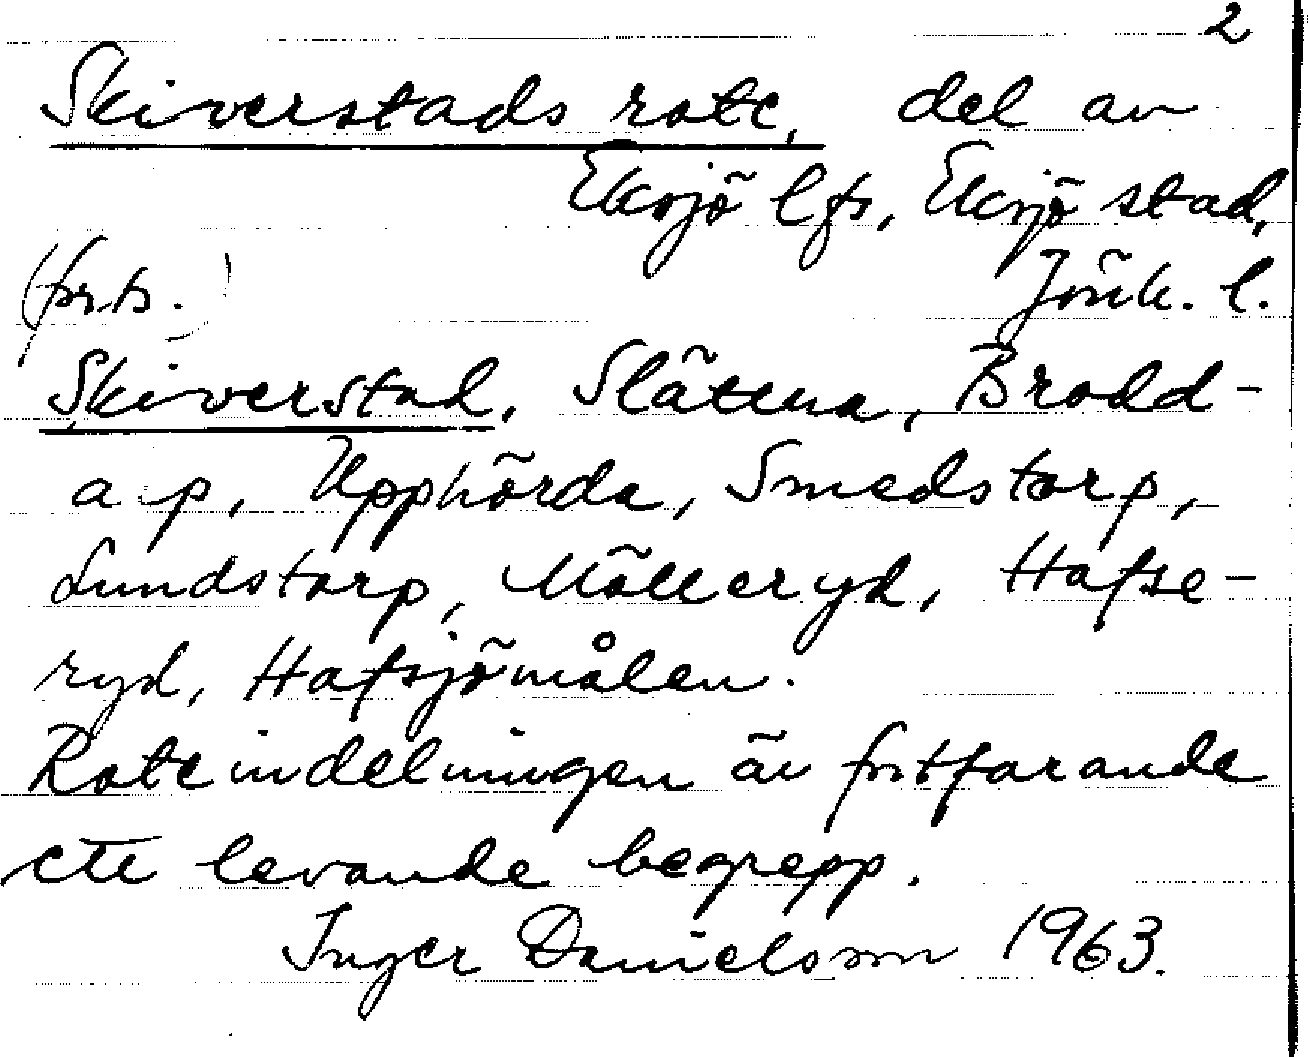 2
Skiverstads rote, del av
Eksjö lfs, Eksjö stad,
(forts.) Jönk. l.
Skiverstad, Slätena, Brodd-
arp, Upphörda, Smedstorp,
Lundstorp, Mölleryd, Hafse-
ryd, Hafsjömålen.
Roteindelningen är fortfarande
ett levande begrepp.
Inger Danielsson 1963.